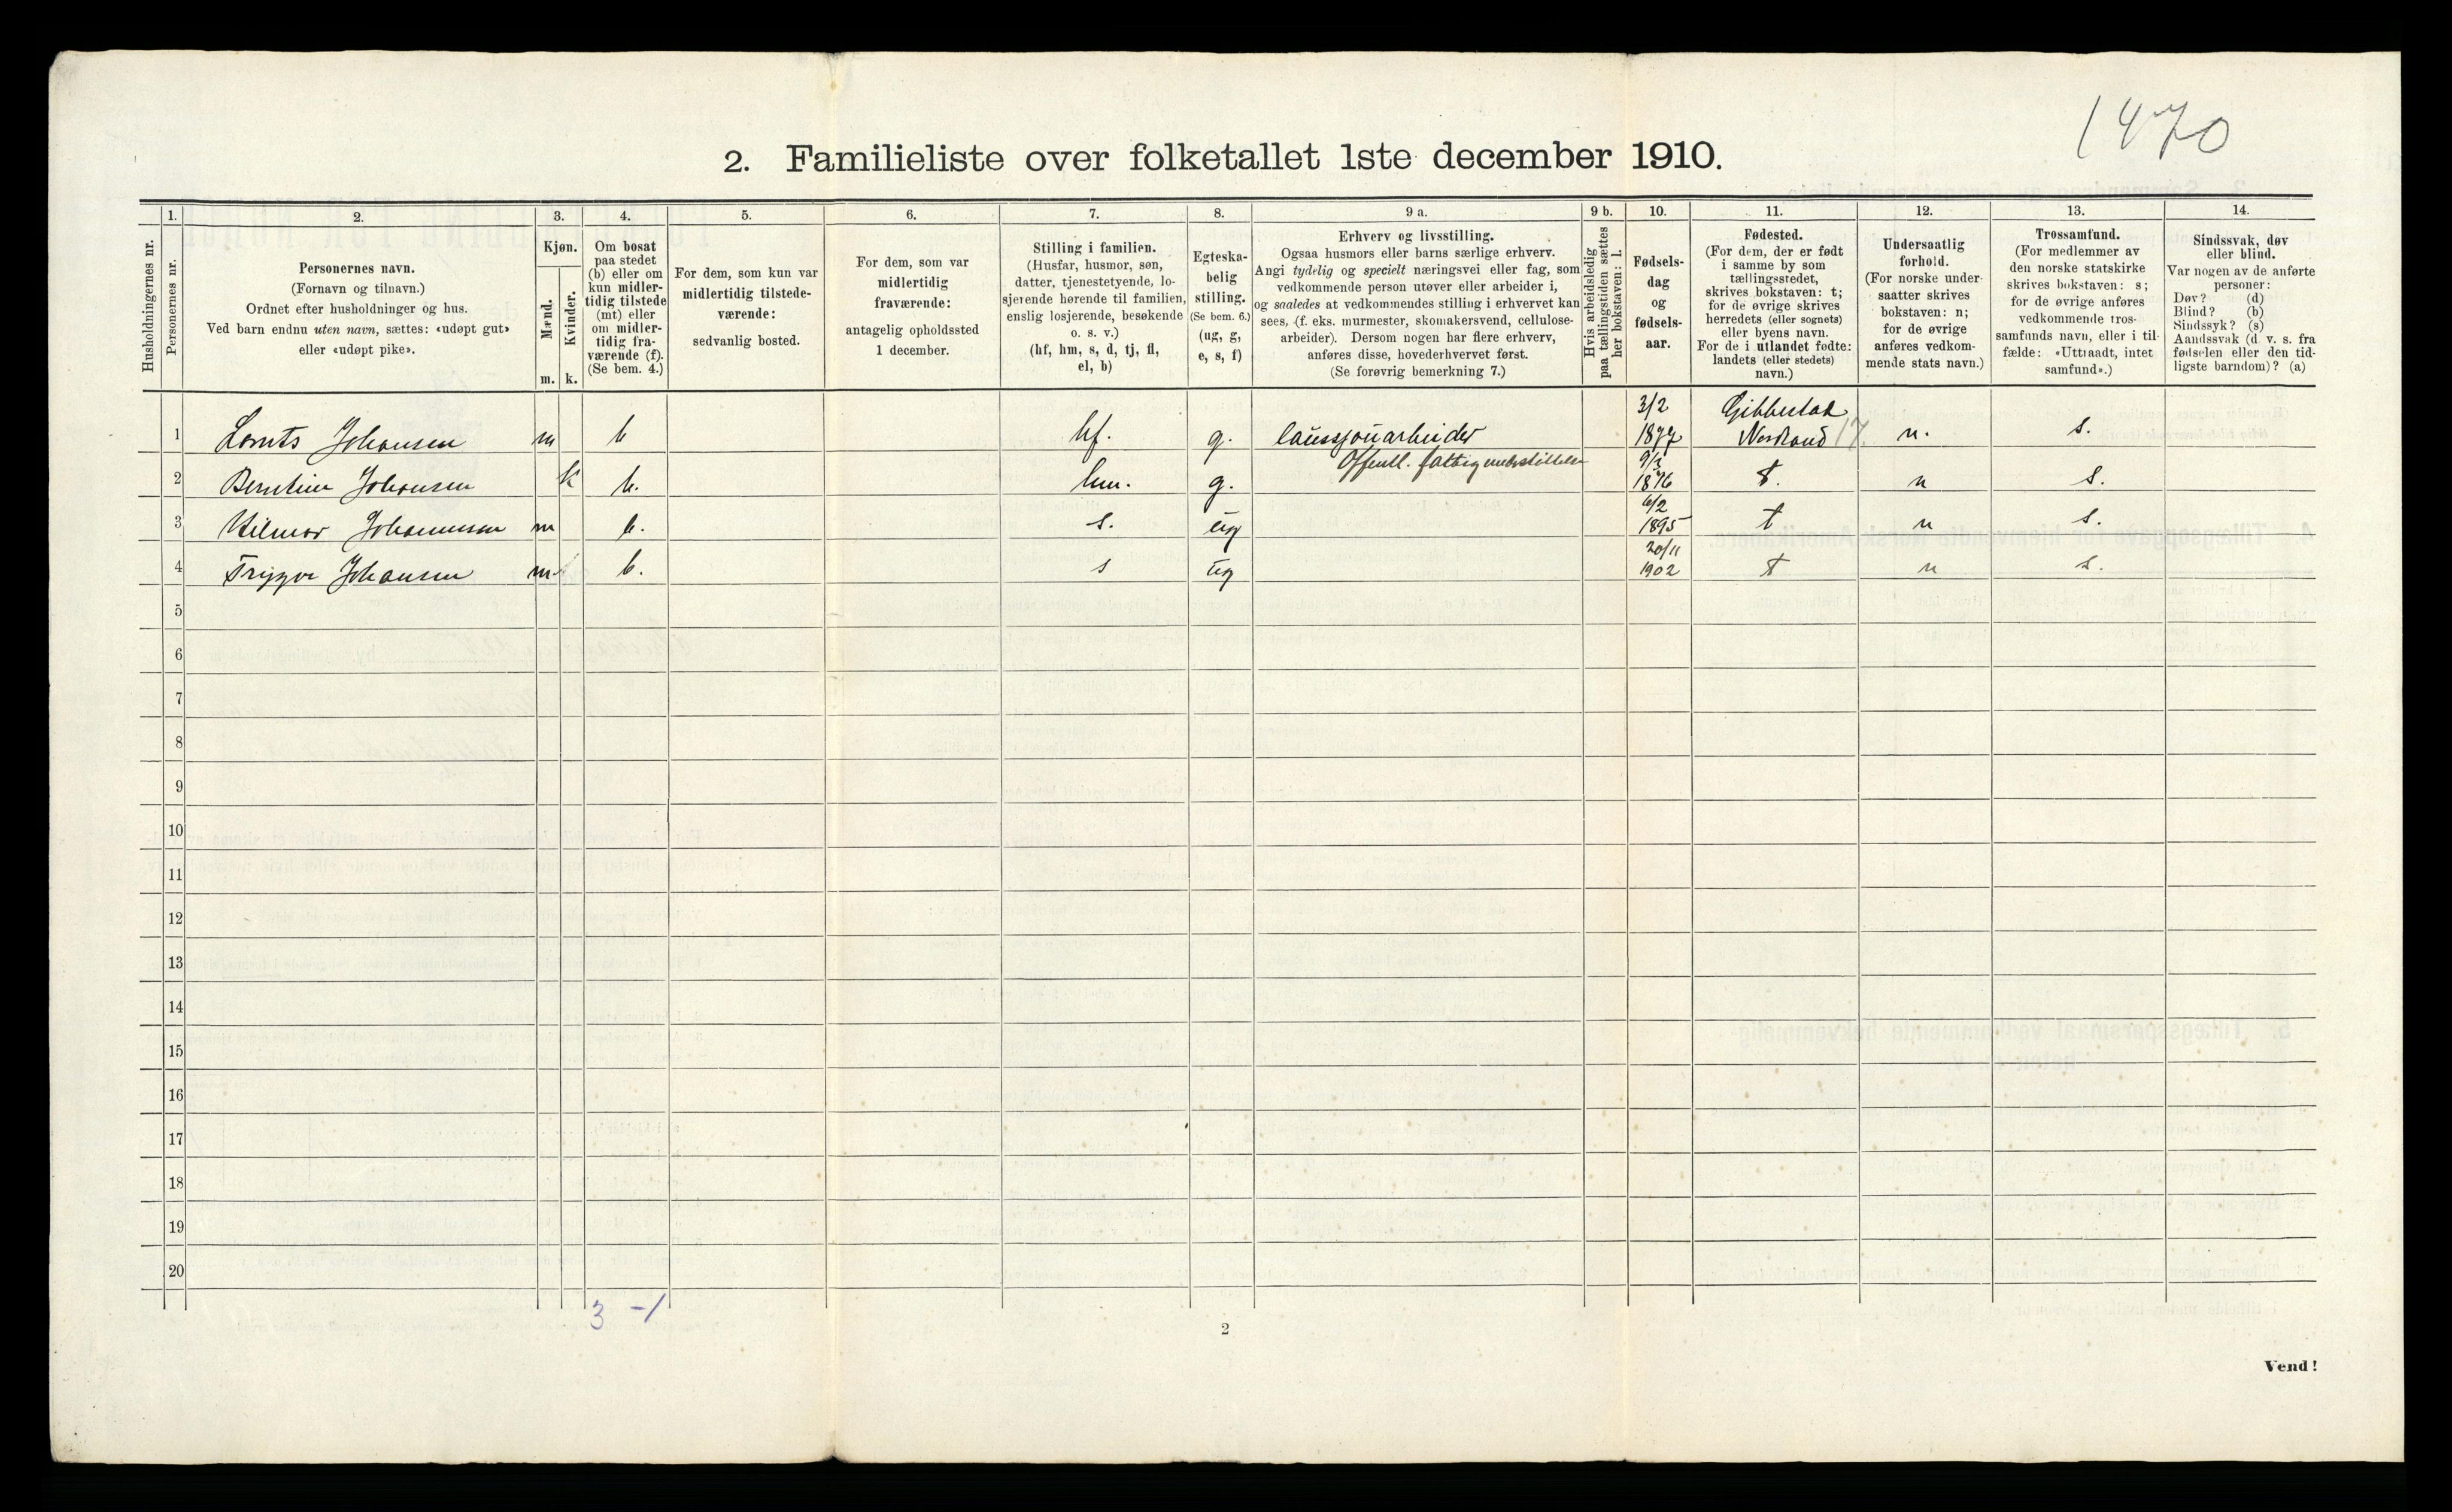 1470
2. Familieliste over folketallet 1ste december 1910.
Husholdningernes nr.
1.
Personernes nr.
2.
Personernes navn.
(Fornavn og tilnavn.)
Ordnet efter husholdninger og hus.
Ved barn endnu uten navn, sættes: «udøpt gut»
eller «udøpt pike».
3.
Kjøn.
Mænd.
Kvinder.
m. k.
4.
Om bosat
paa stedet
(b) eller om
kun midler-
tidig tilstede
(mt) eller
om midler-
tidig fra-
værende (f).
(Se bem. 4.)
5.
For dem, som kun var
midlertidig tilstede-
værende:
sedvanlig bosted.
6.
For dem, som var
midlertidig
fraværende:
antagelig opholdssted
1 december.
7.
Stilling i familien.
(Husfar, husmor, søn,
datter, tjenestetyende, lo-
sjerende hørende til familien,
enslig losjerende, besøkende
o. s. v.)
(hf, hm, s, d, tj, fl,
el, b)
8.
Egteska-
belig
stilling.
(Se bem. 6.)
(ug, g,
e, s, f)
9 a.
Erhverv og livsstilling.
Ogsaa husmors eller barns særlige erhverv.
Angi tydelig og specielt næringsvei eller fag, som
vedkommende person utøver eller arbeider i,
og saaledes at vedkommendes stilling i erhvervet kan
sees, (f. eks. murmester, skomakersvend, cellulose-
arbeider). Dersom nogen har flere erhverv,
anføres disse, hovederhvervet først.
(Se forøvrig bemerkning 7.)
9 b.
Hvis arbeidsledig
paa tællingstiden sættes
her bokstaven: l.
10.
Fødsels-
dag
og
fødsels-
aar.
11.
Fødested.
(For dem, der er født
i samme by som
tællingsstedet,
skrives bokstaven: t;
for de øvrige skrives
herredets (eller sognets)
eller byens navn.
For de i utlandet fødte:
landets (eller stedets)
navn.)
12.
Undersaatlig
forhold.
(For norske under-
saatter skrives
bokstaven: n;
for de øvrige
anføres vedkom-
mende stats navn.)
13.
Trossamfund.
(For medlemmer av
den norske statskirke
skrives bokstaven: s;
for de øvrige anføres
vedkommende tros-
samfunds navn, eller i til-
fælde: «Uttraadt, intet
samfund».)
14.
Sindssvak, døv
eller blind.
Var nogen av de anførte
personer:
Døv? (d)
Blind? (b)
Sindssyk? (s)
Aandssvak (d. v. s. fra
fødselen eller den tid-
ligste barndom)? (a)
3/2 Gibbestad
1 Lorents Johansen m b hf. g. laussjouarbeider 1877 Nordland 17 n. s.
Offentl. fattigunderstøttelse
2 Berntine Johansen k b. hm. g. 1876 t. n s.
6/2
3 Hilmar Johannssen m b. s. ug 1895 t n s.
20/11
4 Trygve Johansen m b. s ug 1902 t n s.
5
6
7
8
9
10
11
12
13
14
15
16
17
18
19
20
3 -1
2
Vend!